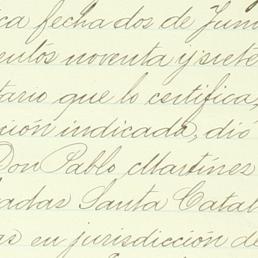 ca fechados de Juni
entos noventa y siete
tario que lo certifica,
ción indicada, dió
Don Pablo Martínez
ladas Santa Catal
as en jurisdicción de